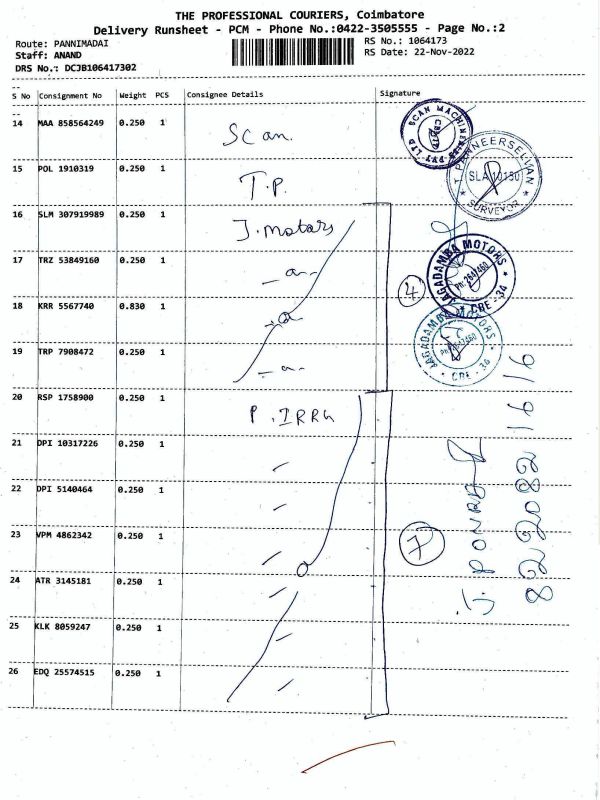 THE PROFESSIONAL COURIERS, Coimbatore
Delivery Runsheet - PCM - Phone No.:0422-3505555 - Page No.:2
Route: PANNIMADAI
RS No.: 1064173
Staff: ANAND
RS Date: 22-Nov-2022
DRS No.: DCJB106417302
S No Consignment No Weight PCS Consignee Details Signature
14 MAA 858564249 0.250 1 Scan.
SCAN MACHINERIES PVT LTD
15 POL 1910319 0.250 1 T.P.
T. PANNEERSELVAN
SLA 10150
* SURVEYOR *
16 SLM 307919989 0.250 1 J.motors
17 TRZ 53849160 0.250 1 -a-
JAGADAMBA MOTORS
PH: 2647460
* CBE - 34 *
18 KRR 5567740 0.830 1 -a- 4
JAGADAMBA MOTORS
* CBE - 34 *
19 TRP 7908472 0.250 1 -a-
20 RSP 1758900 0.250 1 P.IRRG
21 DPI 10317226 0.250 1
22 DPI 5140464 0.250 1
23 VPM 4862342 0.250 1 7
24 ATR 3145181 0.250 1
25 KLK 8059247 0.250 1
26 EDQ 25574515 0.250 1